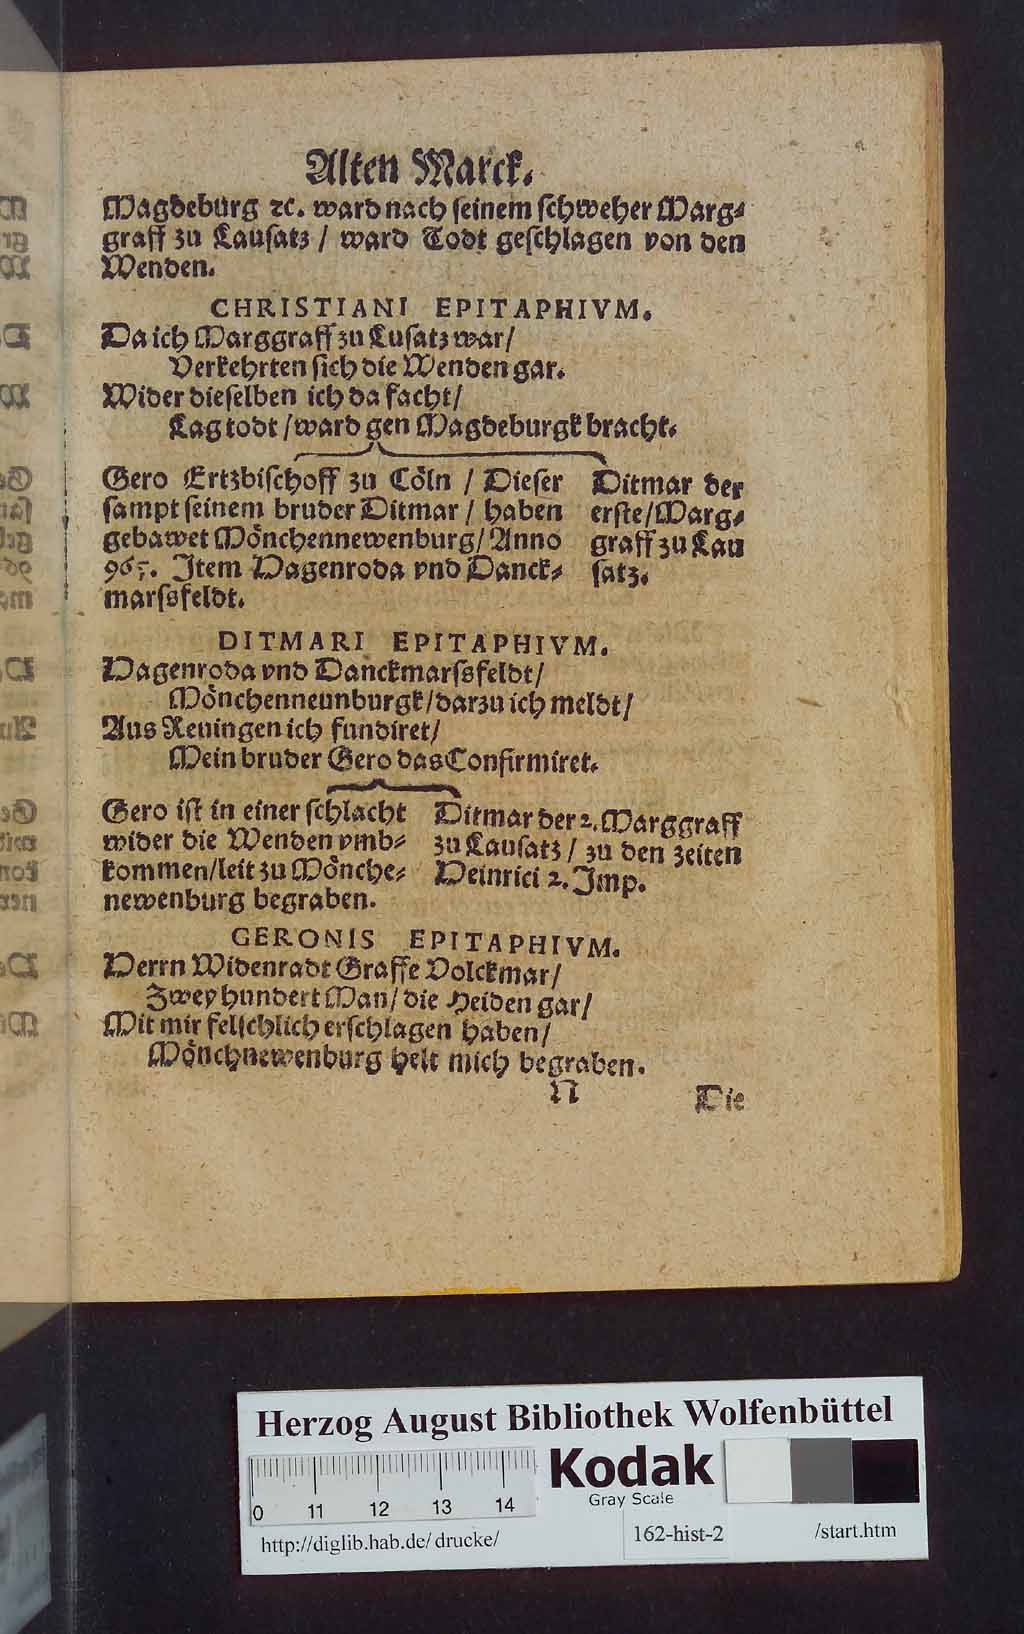 Alten Marck.
Magdeburg ꝛc. ward nach seinem schweher Marg⸗
graff zu Lausatz / ward Todt geschlagen von den
Wenden.
CHRISTIANI EPITAPHIVM.
Da ich Marggraff zu Lusatz war/
Verkehrten sich die Wenden gar.
Wider dieselben ich da facht/
Lag todt /ward gen Magdeburgk bracht.
Gero Ertzbischoff zu Cöln / Dieser
sampt seinem bruder Ditmar / haben
gebawet Mönchennewenburg/ Anno
Item Hagenroda vnd Danck⸗
marssfeldt.
Ditmar der
erste/Marg⸗
graff zu Lau
satz.
DITMARI EPITAPHIVM.
Hagenroda vnd Danckmarssfeldt/
Mönchenneunburgk/darzu ich meldt/
Aus Reuingen ich fundiret/
Mein bruder Gero das Confirmiret.
Gero ist in einer schlacht
wider die Wenden vmb⸗
kommen/leit zu Mönche⸗
newenburg begraben.
Ditmar der 2. Marggraff
zu Lausatz / zu den zeiten
Heinrici 2. Imp.
GERONIS EPITAPHIVM.
Herrn Widenradt Graffe Volckmar/
Zwey hundert Man/ die Heiden gar/
Mit mir felschlich erschlagen haben/
Mönchnewenburg helt mich begraben.
N
Die
Herzog August Bibliothek Wolfenbüttel
Kodak
Gray Scale
0 11 12 13 14
http://diglib.hab.de/drucke/
162-hist-2
/start.htm